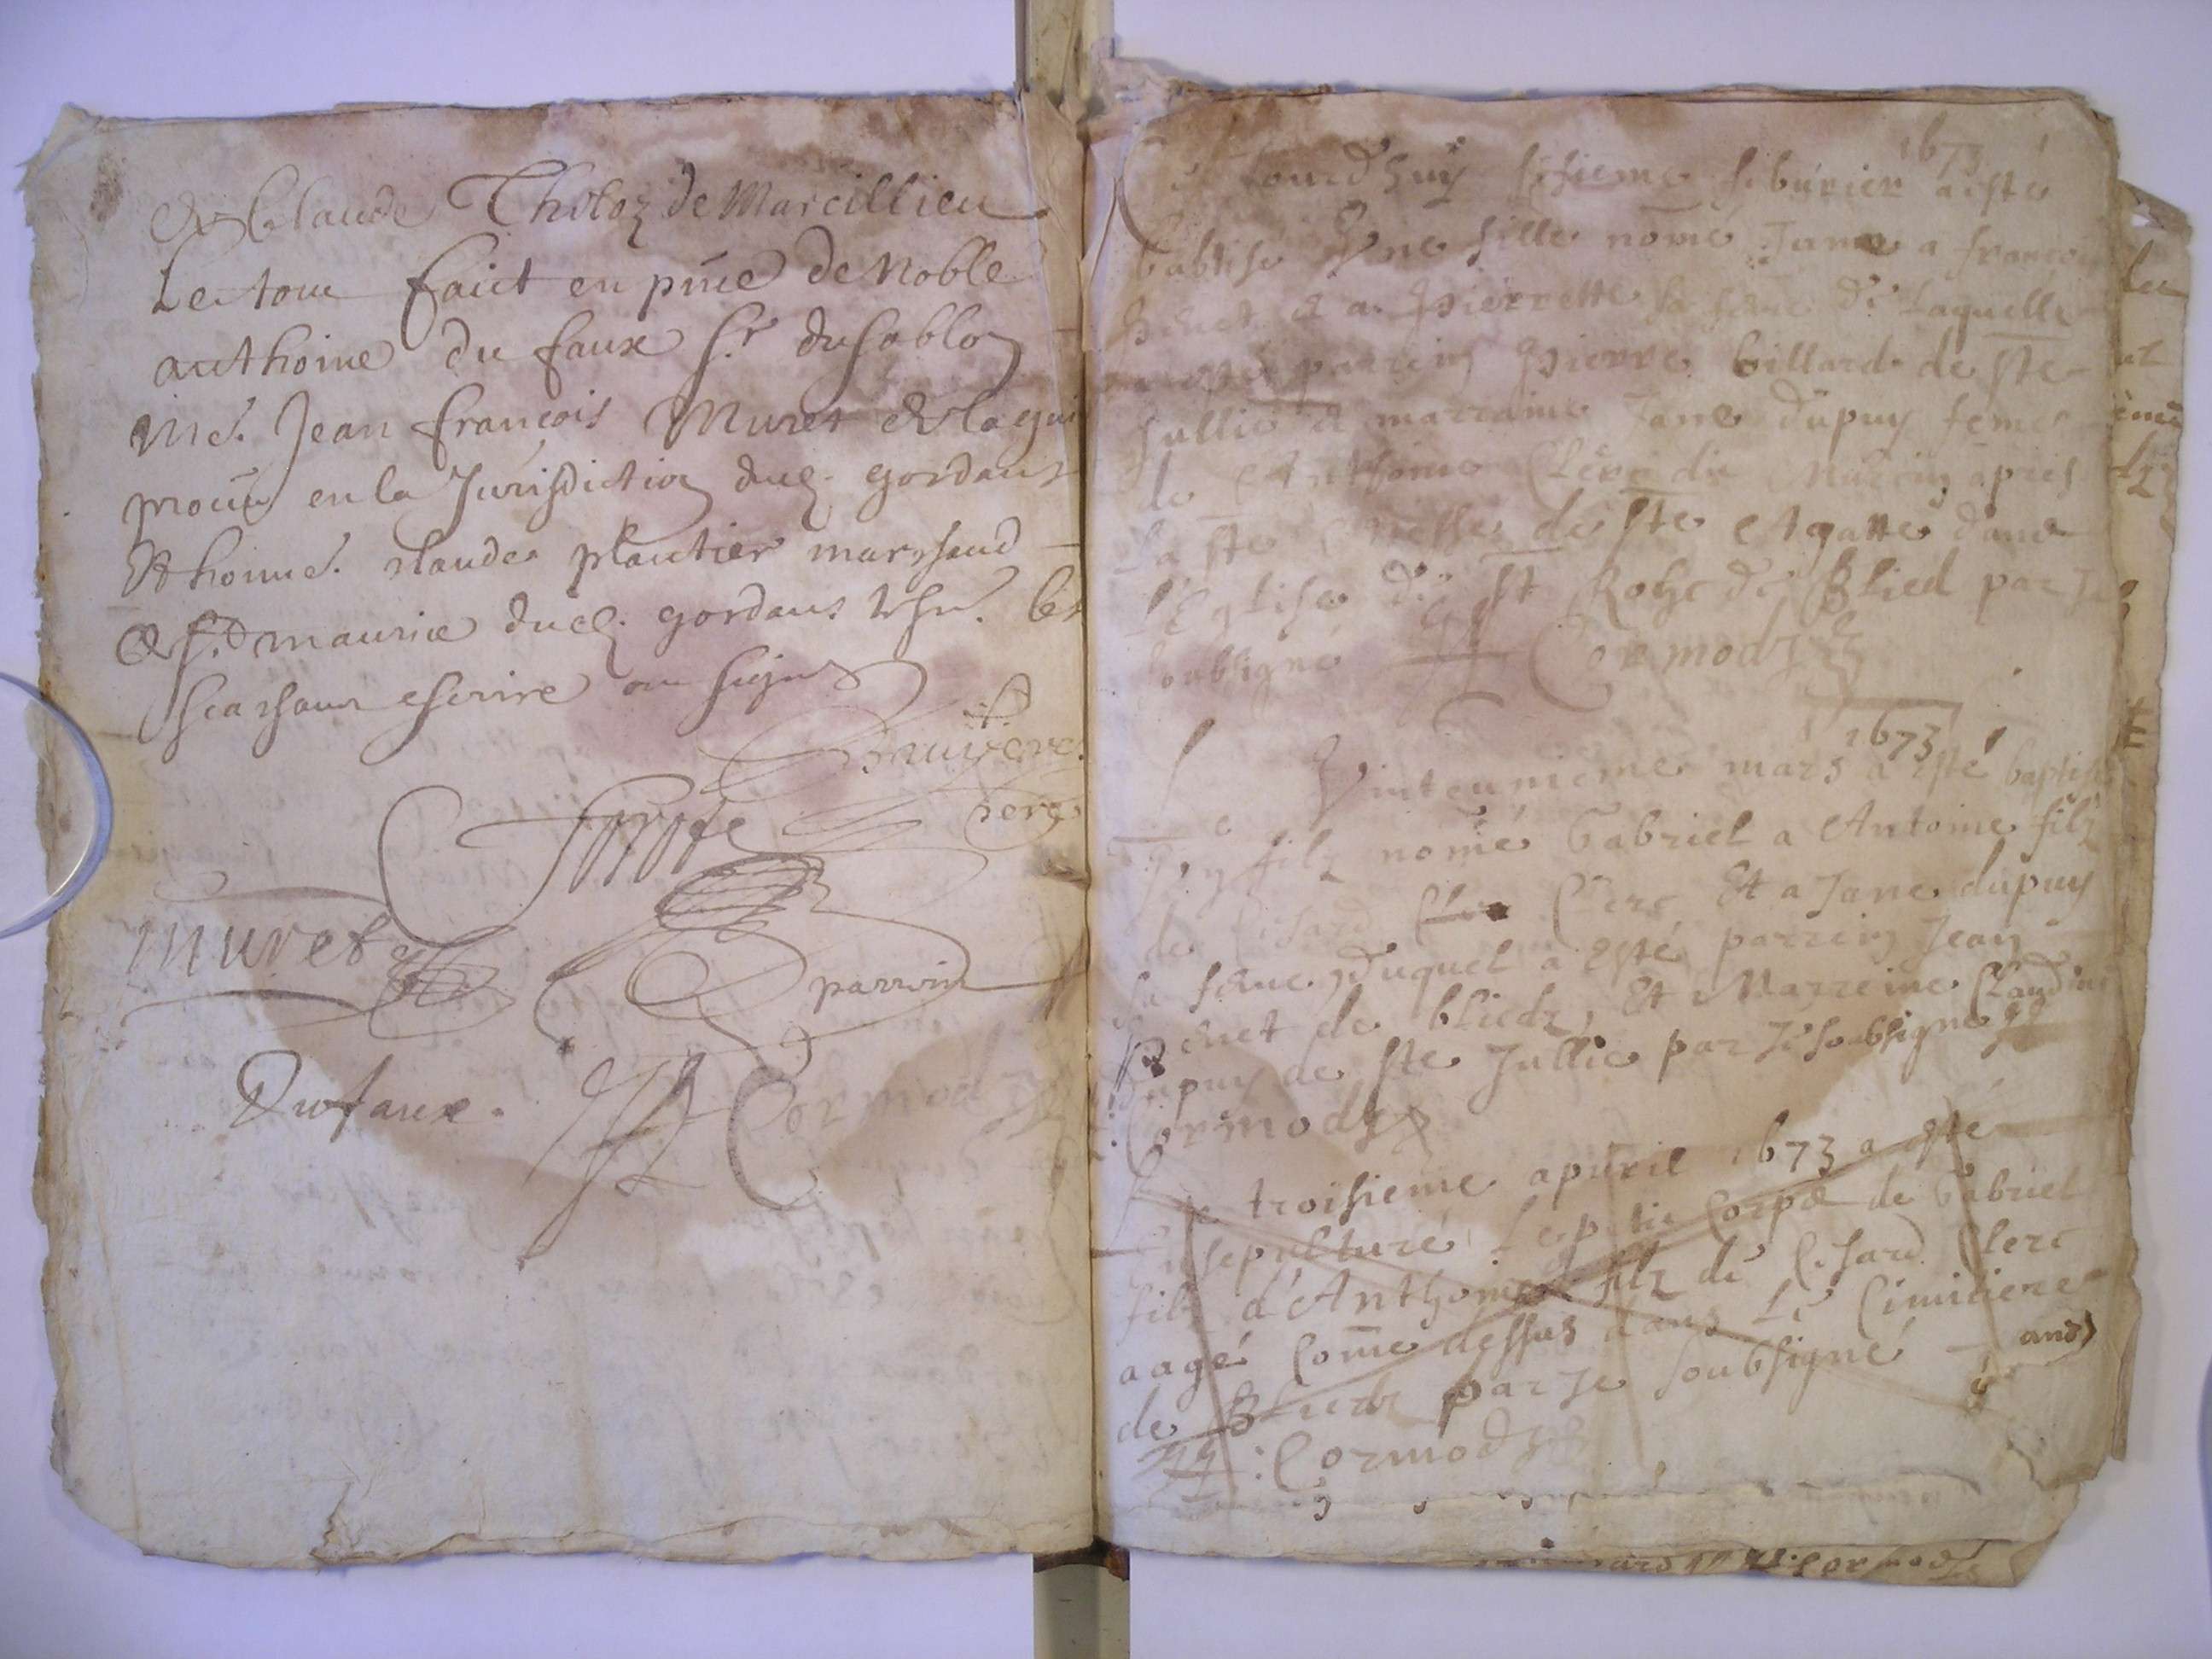 & Claude Tholoz de Marcillieu
Le tout faict en pñce de Noble
anthoine du faux Sr. du Sablon
Me. Jean françois Muret &
procur en la Jurisdiction dud. gordans
Et honne. claude plantier marchand
& Sr. maurice dud. gordans
scachans escrire ont signes
Bruyere
Muret
parrin
Dufaux. Cormodz
1673
Ce jourdhuy sisieme feburier a esté
babtisé Une fille nomé Jane a francois
Penet et a Pierrette sa feme de Laquelle
parrein Pierre billard de ste
Jullie et marraine Jane dupuy feme
de Anthoine Clerc du apres
La ste Messe de ste Agatte dans
L'Eglise de st Rohc de Blied par Je
soubsigné Cormodz
1673
Le Vinteunieme mars a esté baptisé
Vn filz nomé Gabriel a Antoine filz
de Clerc Et a Jane dupuy
sa feme, duquel a esté parrein Jean
Penet de bliedz, Et Marreine Claudine
dupuy de ste Jullie par Je soubsigné
Cormodz
Le troisieme apuril 1673 a esté
ensepulturé Le petit Corps de Gabriel
filz d'Anthoine filz de Clerc
aagé Come dessus dans Le Cimitiere
de Bliedz par Je soubsigné
Cormodz